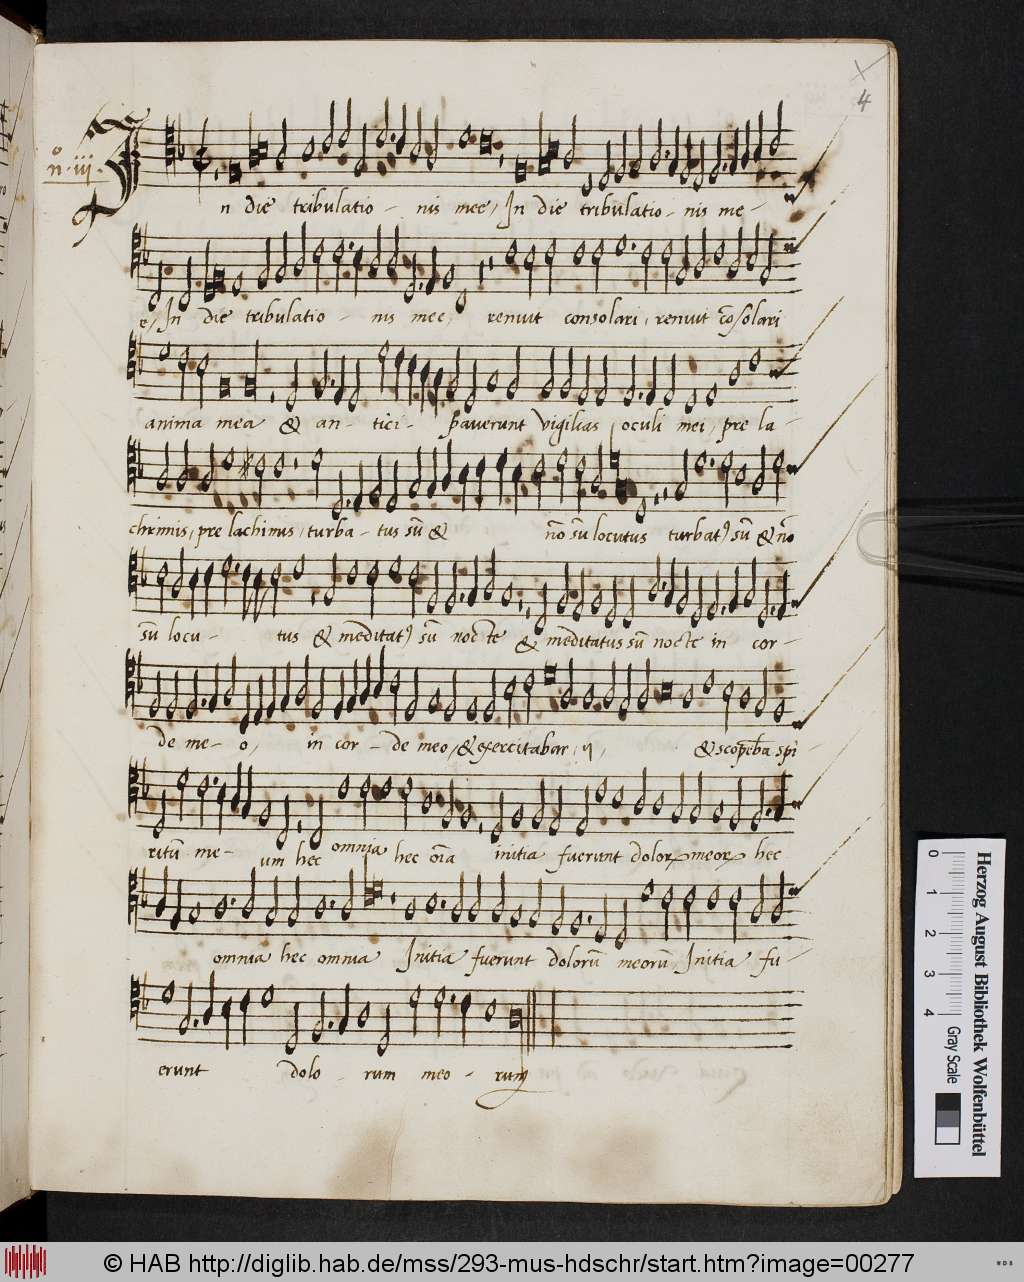 4
nº iij.
In die tribulatio - nis mee, In die tribulatio - nis me -
e, In die tribulatio - nis mee, renuit consolari, renuit cōsolari
anima mea & an - tici - pauerunt vigilias, oculi mei, pre la -
chrimis, pre lachimis, turba - tus sū & nō sū locutus turbat9 sū & nō
sū locu - tus & meditat9 sū nocte & meditatus sū nocte in cor -
de me - o, in cor - de meo, & exercitabar, ij, & scopeba spi -
ritū me - um hec omnia hec oīa initia fuerunt dolorꝝ meorꝝ hec
omnia hec omnia Initia fuerunt dolorū meorū Initia fu -
erunt dolo - rum meo - rum
0 1 2 3 4
Gray Scale
Herzog August Bibliothek Wolfenbüttel
© HAB http://diglib.hab.de/mss/293-mus-hdschr/start.htm?image=00277
WDB